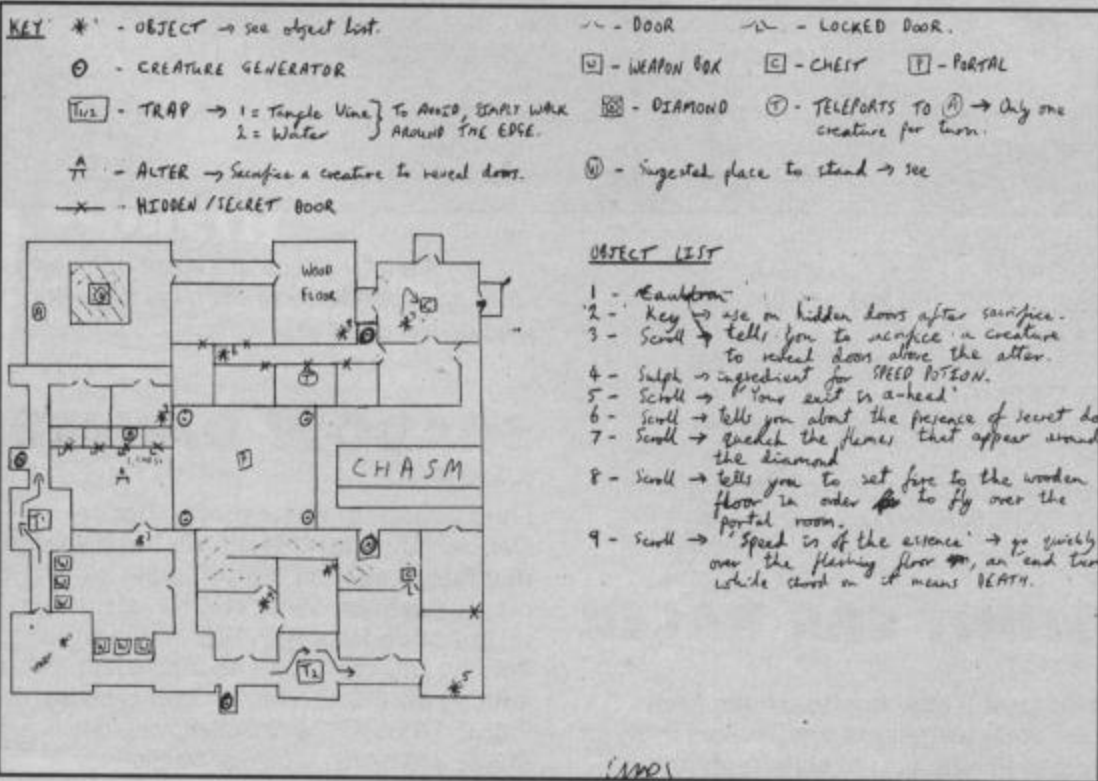 KEY * - OBJECT → see object list.
- CREATURE GENERATOR
TW2 - TRAP → 1 = Tangle Vine } TO AVOID, SIMPLY WALK
2 = Water } AROUND THE EDGE.
A - ALTER → Sacrifice a creature to reveal doors.
-X- - HIDDEN/SECRET DOOR
- DOOR - LOCKED DOOR.
W - WEAPON BOX C - CHEST P - PORTAL
- DIAMOND T - TELEPORTS TO A → Only one
creature per turn.
W - Sugested place to stand → see
OBJECT LIST
1 - Cauldron
2 - Key → use on hidden doors after sacrifice.
3 - Scroll → tells you to sacrifice a creature
to reveal doors above the alter.
4 - Sulph → ingredient for SPEED POTION.
5 - Scroll → 'Your exit is a-head'
6 - Scroll → tells you about the presence of secret do
7 - Scroll → quench the flames that appear around
the diamond
8 - Scroll → tells you to set fire to the wooden
floor in order to to fly over the
portal room.
9 - Scroll → 'Speed is of the essence' → go quickly
over the flashing floor, an end turn
while stood on it means DEATH.
WOOD
FLOOR
A
C
T
P
CHASM
T1
W
W
W
W W W
C
T2
5